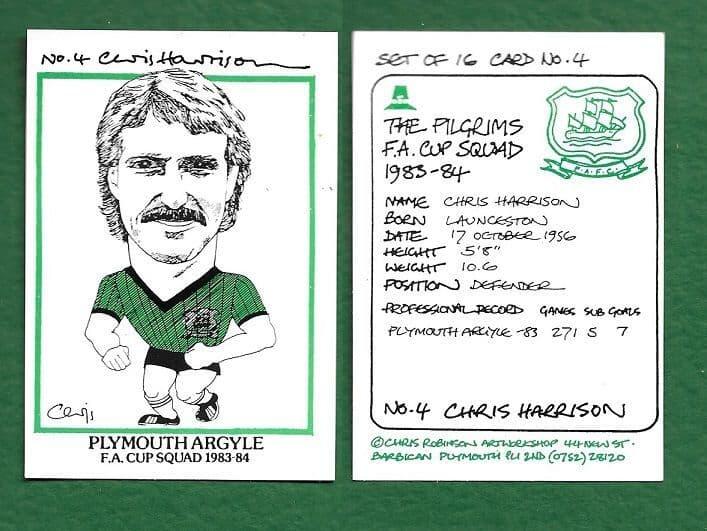 No.4 Chris Harrison
Chris
PLYMOUTH ARGYLE
F.A. CUP SQUAD 1983-84
SET OF 16 CARD No. 4
THE PILGRIMS
F.A. CUP SQUAD
1983-84
P.A.F.C.
NAME CHRIS HARRISON
BORN LAUNCESTON
DATE 17 OCTOBER 1956
HEIGHT 5'8"
WEIGHT 10.6
POSITION DEFENDER
PROFESSIONAL RECORD GAMES SUB GOALS
PLYMOUTH ARGYLE -83 271 5 7
No. 4 CHRIS HARRISON
© CHRIS ROBINSON ARTWORKSHOP 44 NEW ST.
BARBICAN PLYMOUTH PL1 2ND (0752) 28120